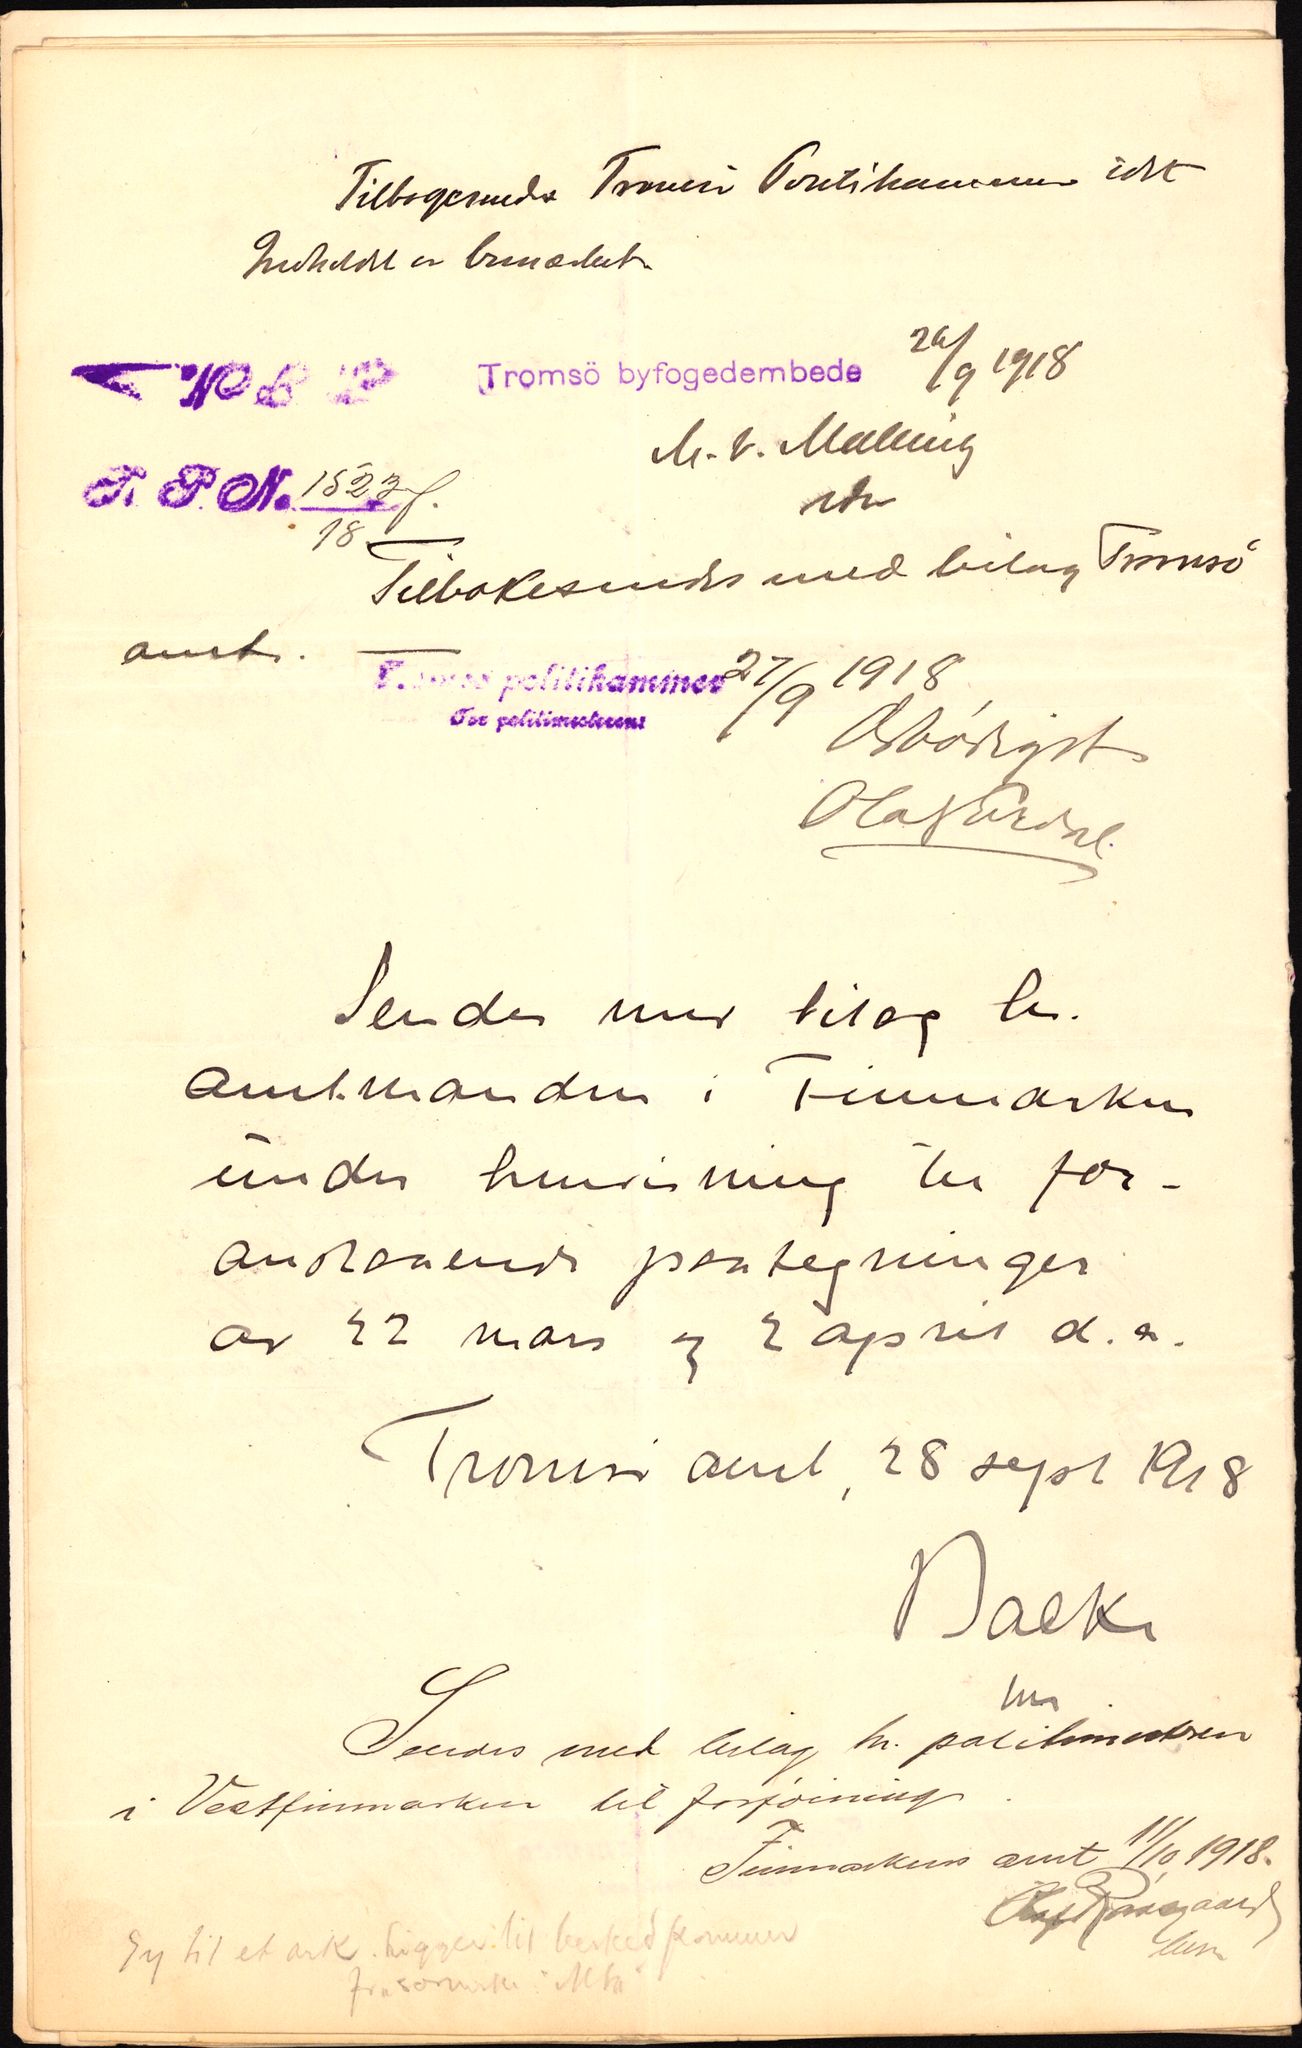 Tilbagesendes Tromsø Politikammer idet
Indholdet er bemærket.
Tromsö byfogedembede 26/9 1918
M. v. Malling
P. P. N. 1523/18 f.
Tilbakesendes med bilag Tromsö
amt.
Tromsø politikammer 27/9 1918
For politimesteren:
Ærbödigst
Olaf
Sendes med bilag hr.
amtmanden i Finmarken
under henvisning til for-
anstaaende paategninger
av 22 mars og 2 april d. a.
Tromsø amt, 28 sept 1918
Backe
Sendes med bilag hr. politimesteren
i Vestfinmarken til forføining.
Finmarkens amt 11/10 1918.
til et ark. ligger til besked kommer
fra